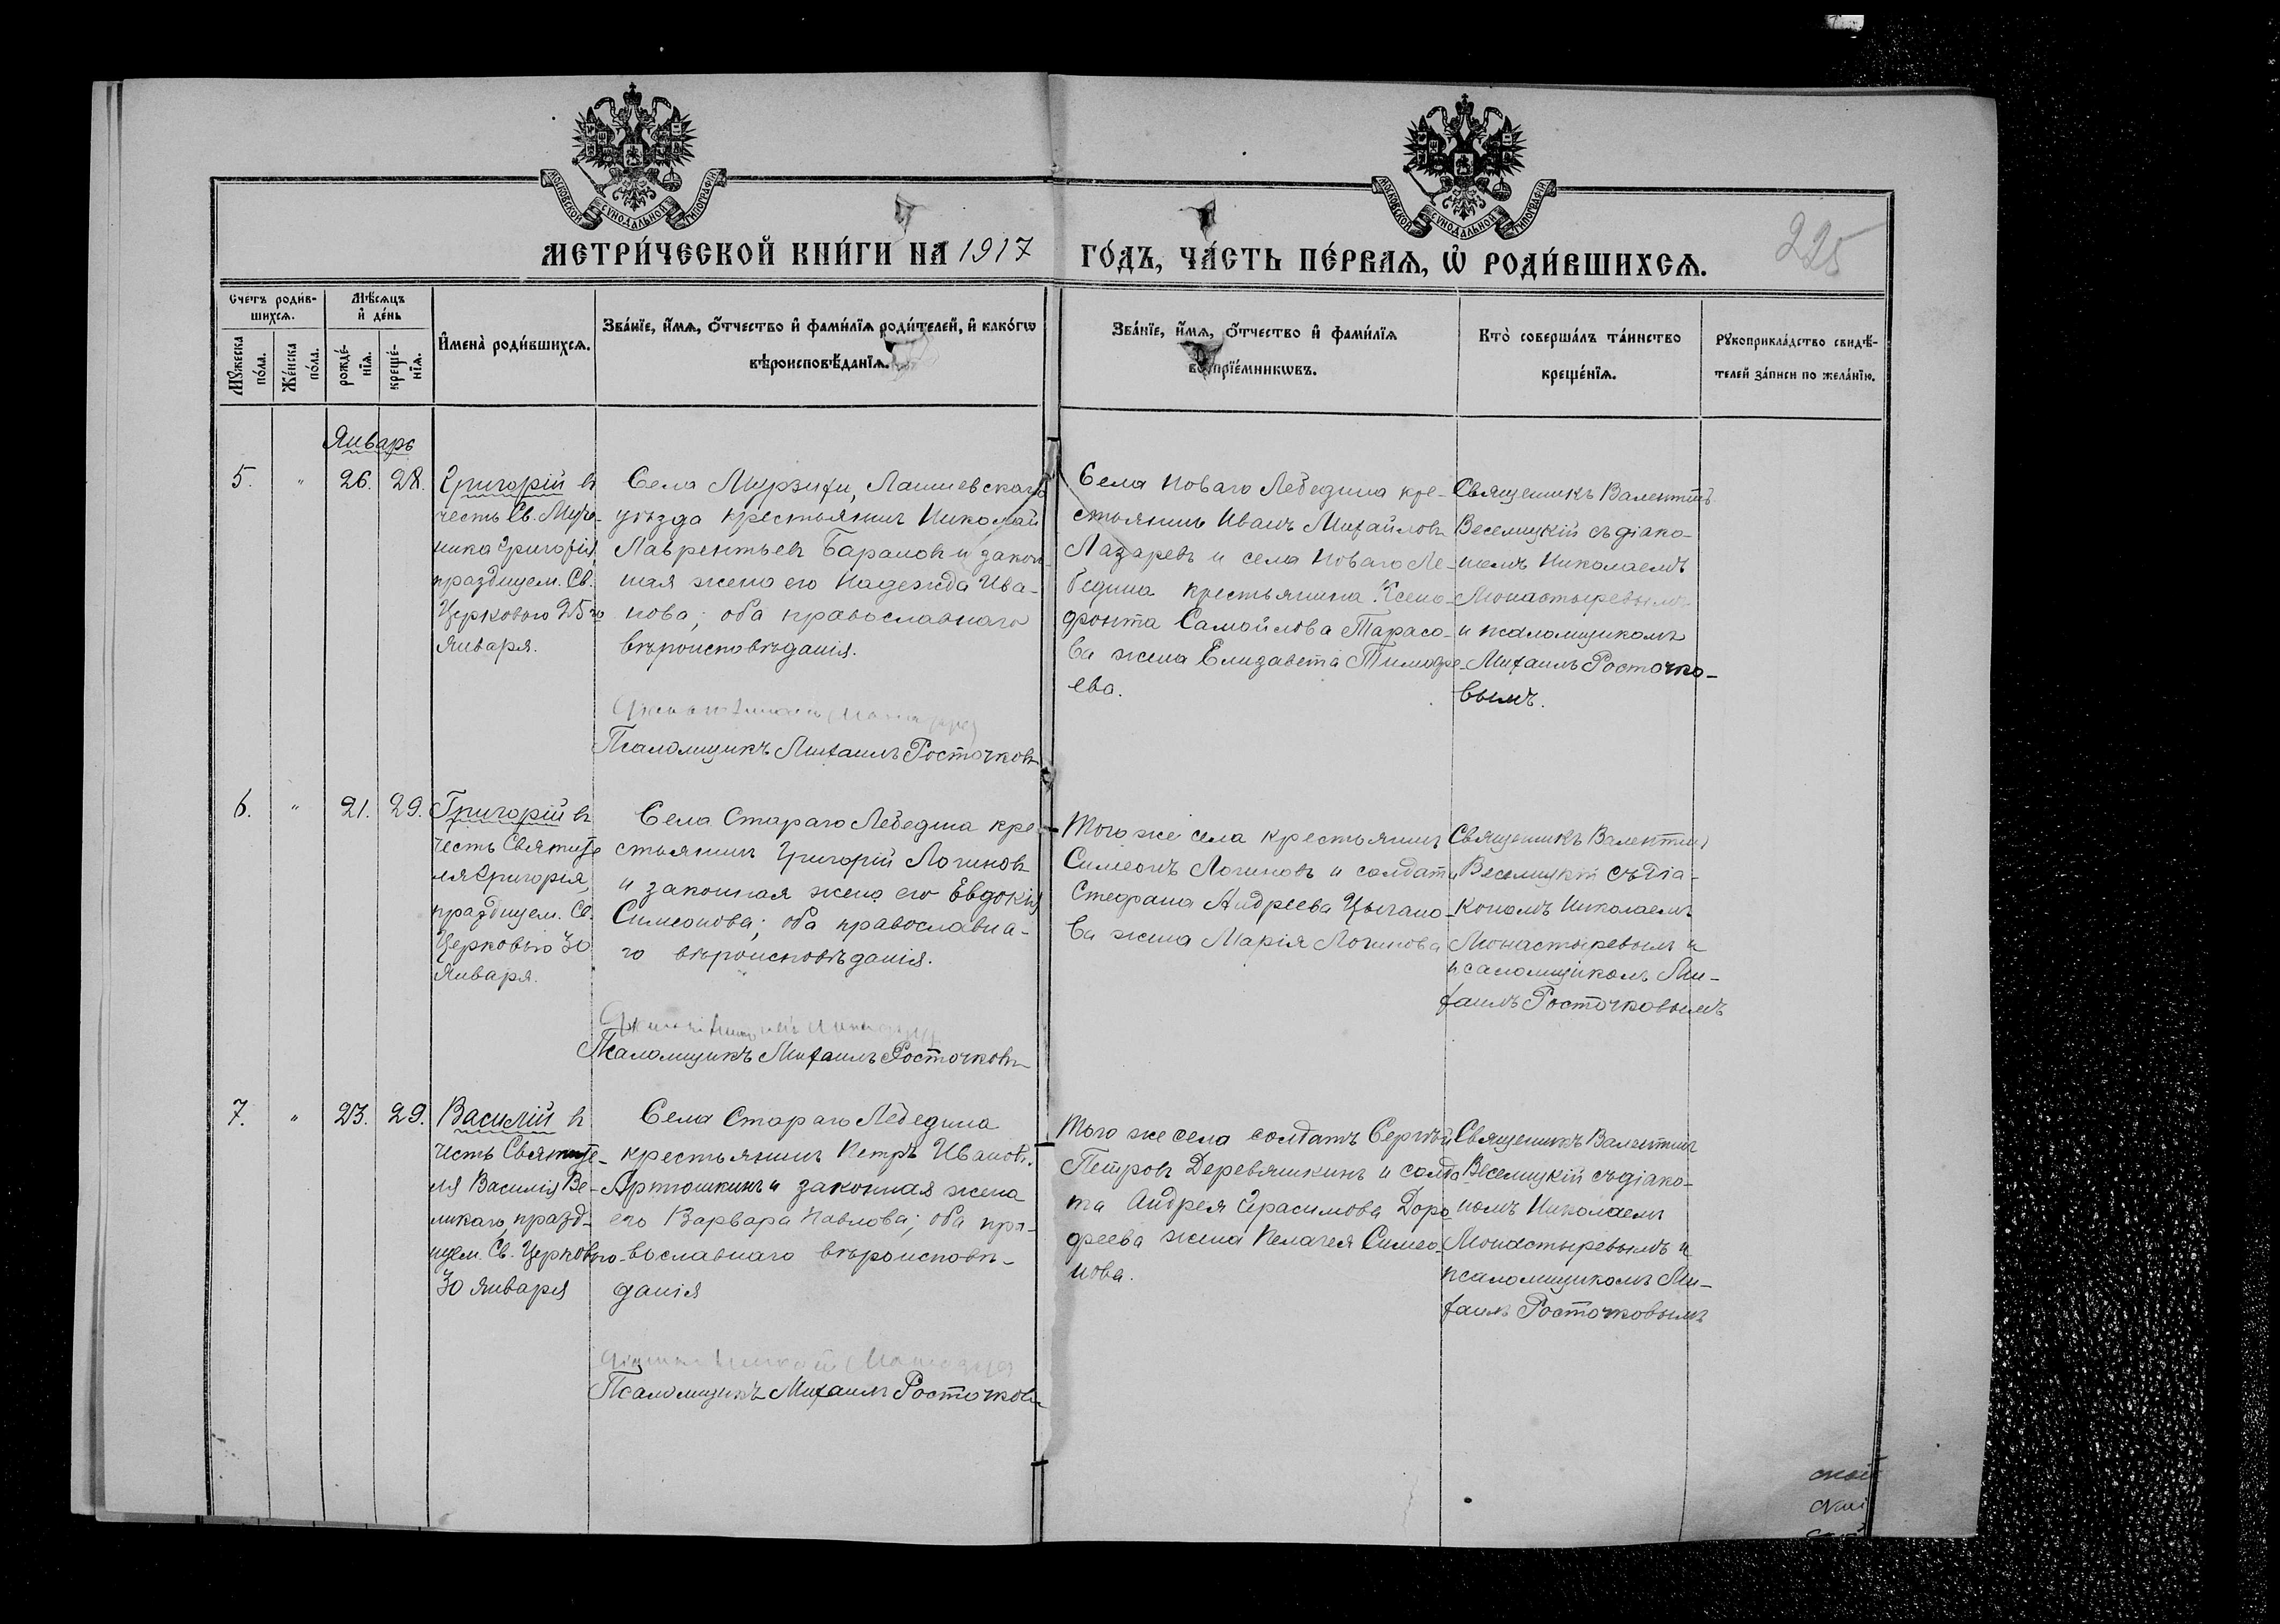 МОСКОВСКОЙ СУНОДАЛЬНОЙ ТИПОГРАФІИ
МОСКОВСКОЙ СУНОДАЛЬНОЙ ТИПОГРАФІИ
МЕТРИ́ЧЕСКОЙ КНИ́ГИ НА 1917
ГО́ДЪ, ЧА́СТЬ ПЕ́РВАѦ, Ѡ РОДИ́ВШИХСѦ.
225
Счетъ роди́в-
шихсѧ.
Мѣ́сѧцъ
и҆ де́нь
Мꙋжеска
по́ла.
Же́нска
по́ла.
рожде́-
нїѧ.
креще́-
нїѧ.
И҆мена̀ роди́вшихсѧ.
Зва́нїе, и҆́мѧ, ѻ҆́тчество и҆ фами́лїѧ роди́телей, и҆ како́гѡ
вѣроисповѣ́данїѧ.
Зва́нїе, и҆́мѧ, ѻ҆́тчество и҆ фами́лїѧ
воспрїе́мникѡвъ.
Кто̀ соверша́лъ та́инство
креще́нїѧ.
Рꙋкоприкла́дство свидѣ́-
телей за́писи по жела́нїю.
Январь
5.
"
26.
28.
Григорій въ
честь Св. Муче-
ника Григорія,
празднуем. Св.
Церковью 25го
Января.
Села Мурзихи, Лаишевскаго
уѣзда крестьянинъ Николай
Лаврентьевъ Барановъ и закон-
ная жена его Надежда Ива-
нова; оба православнаго
вѣроисповѣданія.
Псаломщикъ Михаилъ Росточковъ
Села Новаго Лебедина кре-
стьянинъ Иванъ Михайловъ
Лазаревъ и села Новаго Ле-
бедина крестьянина Ксено-
фонта Самойлова Тарасо-
ва жена Елизавета Тимофе-
ева.
Священникъ Валентинъ
Веселицкій съ діако-
номъ Николаемъ
Монастыревымъ
и псаломщикомъ
Михаилъ Росточко-
вымъ.
6.
"
21.
29.
Григорій въ
честь Святите
ля Григорія,
празднуем. Св.
Церковью 30
Января.
Села Стараго Лебедина кре-
стьянинъ Григорій Логиновъ
и законная жена его Евдокія
Симеонова; оба православна-
го вѣроисповѣданія.
Псаломщикъ Михаилъ Росточковъ
Того же села крестьянинъ
Симеонъ Логиновъ и солдата
Стефана Андреева Цыгано-
ва жена Марія Логинова
Священникъ Валентинъ
Веселицкій съ діа-
кономъ Николаемъ
Монастыревымъ и
псаломщикомъ Ми-
хаилъ Росточковымъ
7.
"
23.
29.
Василій въ
честь Святите-
ля Василія Ве-
ликаго, празд-
нуем. Св. Церковью
30 Января
Села Стараго Лебедина
крестьянинъ Петръ Ивановъ
Артюшкинъ и законная жена
его Варвара Павлова; оба пра-
вославнаго вѣроисповѣ-
данія
Псаломщикъ Михаилъ Росточковъ
Того же села солдатъ Сергѣй
Петровъ Деревяшкинъ и солда
та Андрея Герасимова Доро
феева жена Пелагея Симео-
нова.
Священникъ Валентинъ
Веселицкій съ діако-
номъ Николаемъ
Монастыревымъ и
псаломщикомъ Ми-
хаилъ Росточковымъ